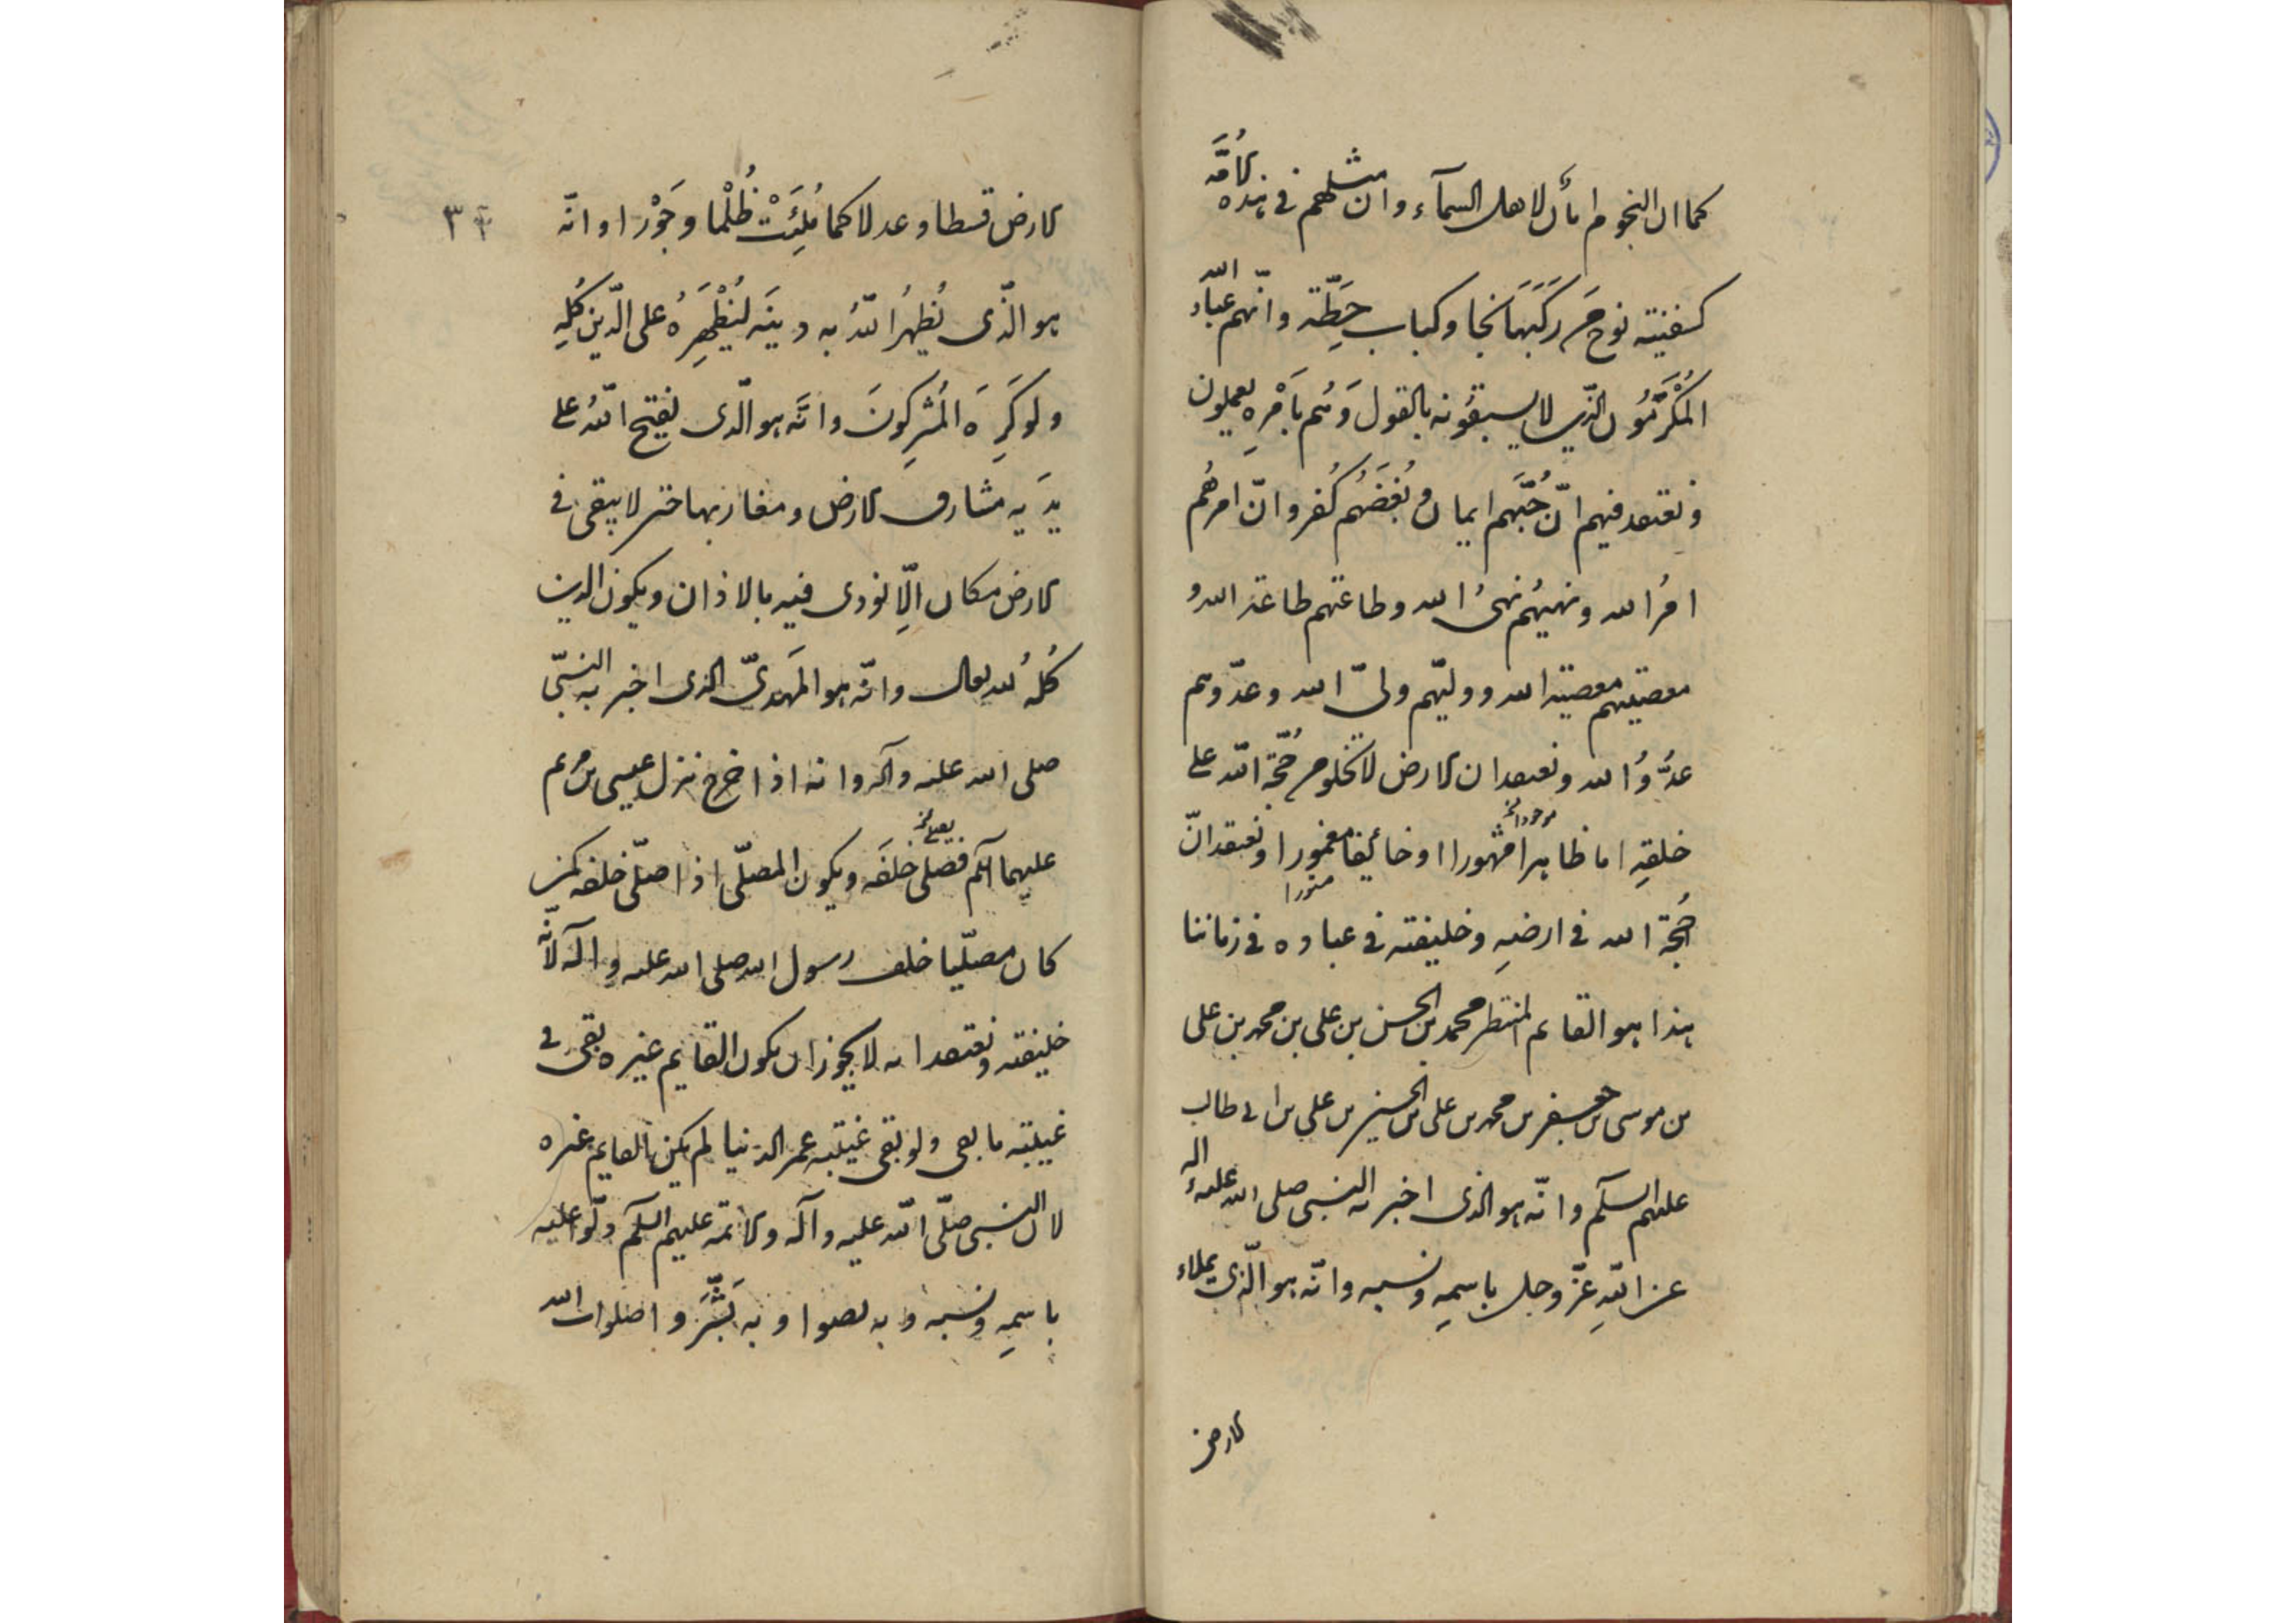 كما ان النجوم امان لاهل السماء وان مثلهم فى هذه الامة
كسفينة نوح من ركبها نجا وكباب حطة وانهم عباد الله
المكرمون الذين لا يسبقونه بالقول وهم بامره يعملون
ونعتقد فيهم انّ حُبَّهم ايمان وبُغضَهُم كُفر وانّ امرهُم
امرُ الله ونهيُهم نهىُ الله وطاعتهم طاعة الله و
معصيتهم معصية الله ووليّهم ولىّ الله وعدّوهم
عدُوُّ الله ونعتقد ان الارض لا تخلو من حُجّة اللّه على
خلقهِ اما ظاهرا مشهورا او خائفا مغمورا ونعتقد انّ
حُجة الله فى ارضهِ وخليفته فى عباده فى زماننا
هذا هو القائم المنتظر محمد بن الحسن بن على بن محمد بن على
بن موسى بن جعفر بن محمد بن على بن الحسين بن على بن ابى طالب
عليهم السلم وانّه هو الذى اخبر به النبى صلى الله عليه واله
عن اللّهِ عزّ وجل باسمهِ ونسبه وانّه هو الّذى يملاء
الارض
٣
الارض قسطا وعدلا كما مُلِئَتْ ظُلْما وجَوْرا وانّه
هو الّذى يُظهرُ اللّهُ به دينَه ليُظْهِرَهُ على الدّين كُلِّهِ
ولو كَرِهَ المُشرِكونَ وانّه هو الّذى يفتح اللّهُ على
يدَيه مشارق الارض ومغاربها حتى لا يبقى فى
الارض مكان الّا نودى فيه بالاذان ويكون الدين
كُلهُ لله تعالى وانّه هو المَهدىّ الذى اخبر به النبىّ
صلى الله عليه وآله وانه اذا خرج نزل عيسى بن مريم
عليهما السلم فصلى خلفَه ويكون المصلّى اذا صلّى خلفه كمن
كان مصلّيا خلف رسول الله صلى الله عليه وآله لانّه
خليفته ونعتقد انه لا يجوز ان يكون القايم غيره بقى فى
غيبته ما بقى ولو بقى غيبته عمر الدنيا لم يكن القايم غيره
لان النبى صلّى اللّه عليه وآله والائمّة عليهم السلم دلّوا عليه
باسمهِ ونسبه وبه نصوا وبه بَشَّرَوا صلوات الله